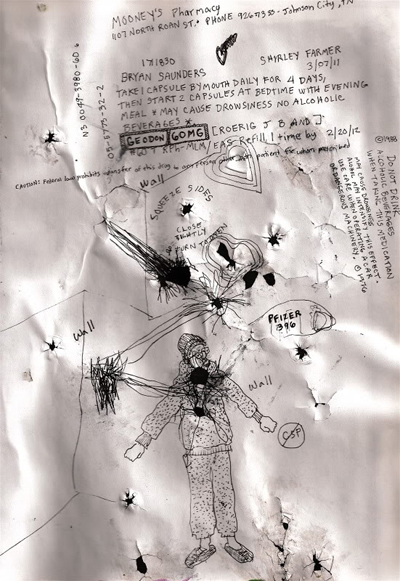 MOONEY'S Pharmacy
1107 NORTH ROAN ST. PHONE 9267333 - Johnson City, TN
171830 SHIRLEY FARMER
BRYAN SAUNDERS 3/07/11
TAKE 1 CAPSULE BY MOUTH DAILY FOR 4 DAYS,
THEN START 2 CAPSULES AT BEDTIME WITH EVENING
MEAL * MAY CAUSE DROWSINESS NO ALCOHOLIC
BEVERAGES *
GEODON 60MG CROERIG J B AND J
RPH-MLM/EAS Refill 1 time by 2/20/12
CAUTION: Federal law prohibits transfer of this drug to any person other than patient for whom prescribed
©1988 DO NOT DRINK
ALCOHOLIC BEVERAGES
WHEN TAKING THIS MEDICATION
MAY CAUSE DROWSINESS
ALCOHOL MAY INTENSIFY THIS EFFECT
USE CARE WHEN OPERATING A CAR
OR DANGEROUS MACHINERY. © 1976
Wall
SQUEEZE SIDES
CLOSE
TIGHTLY
TURN
PFIZER
396
Wall
Wall
CSF